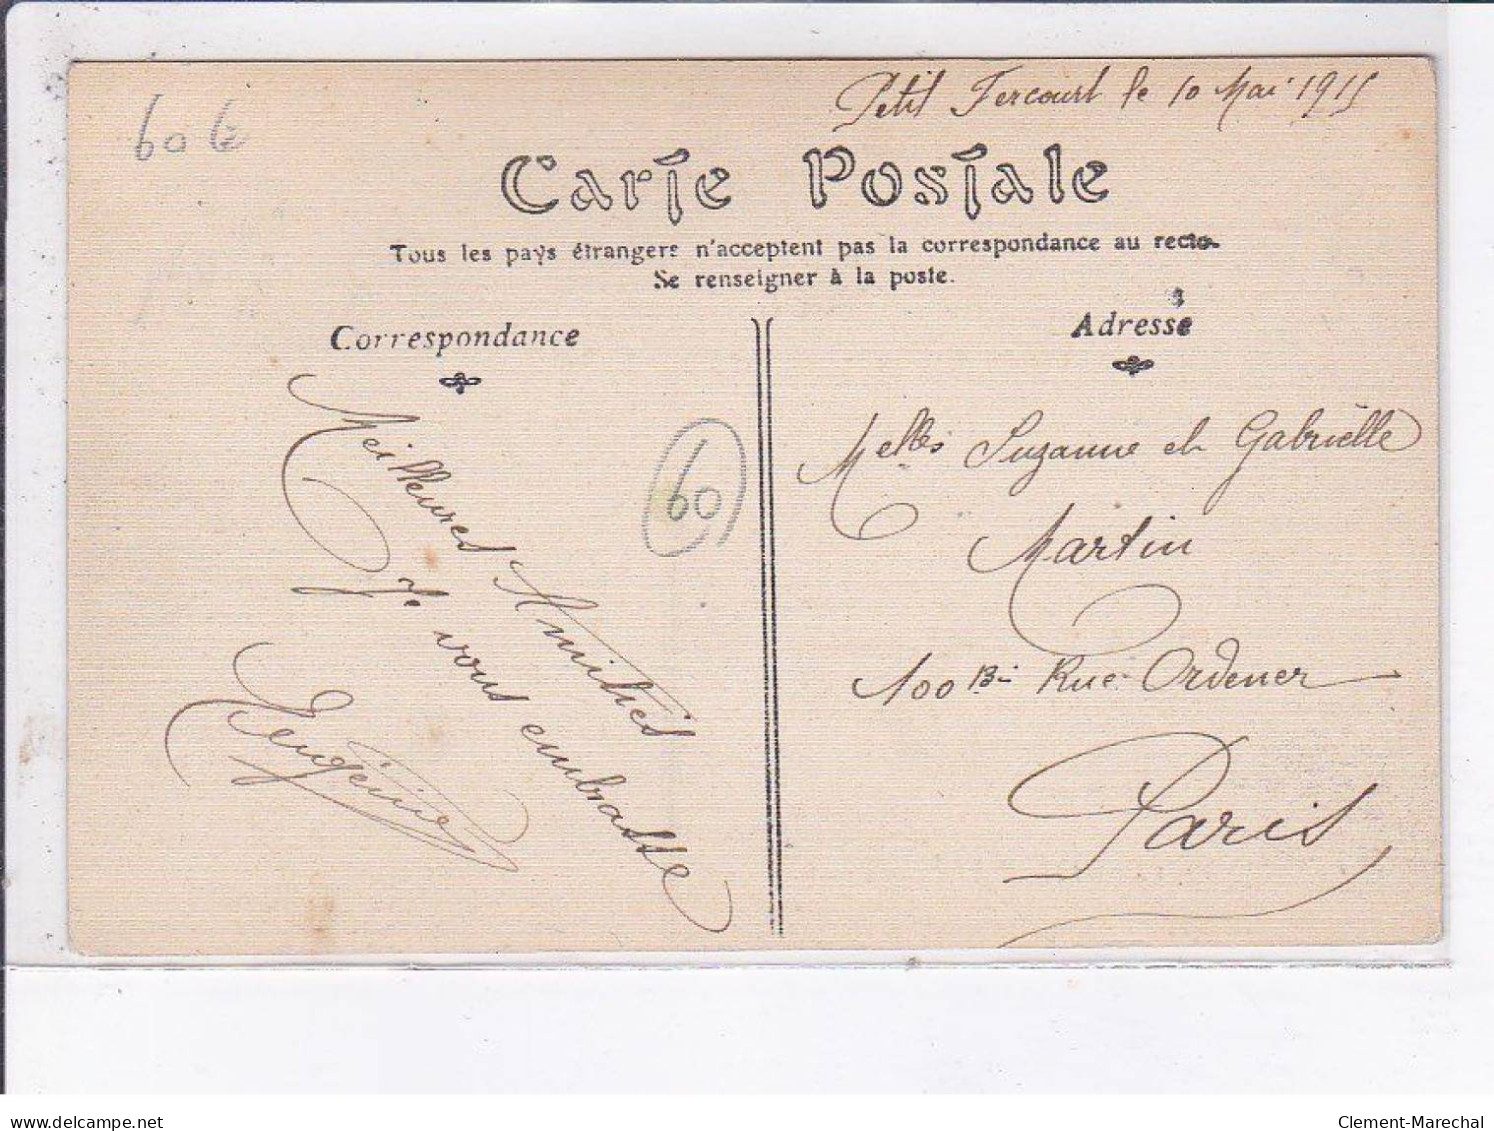 Petit Fercourt le 10 Mai 1915
60 €
Carte Postale
Tous les pays étrangers n'acceptent pas la correspondance au recto.
Se renseigner à la poste.
Correspondance
Adresse
Meilleures Amitiés
Je vous embrasse
Eugénie
60
Melles Suzanne et Gabrielle
Martin
100 Bis Rue Ordener
Paris
delcampe.net
Clement-Marechal